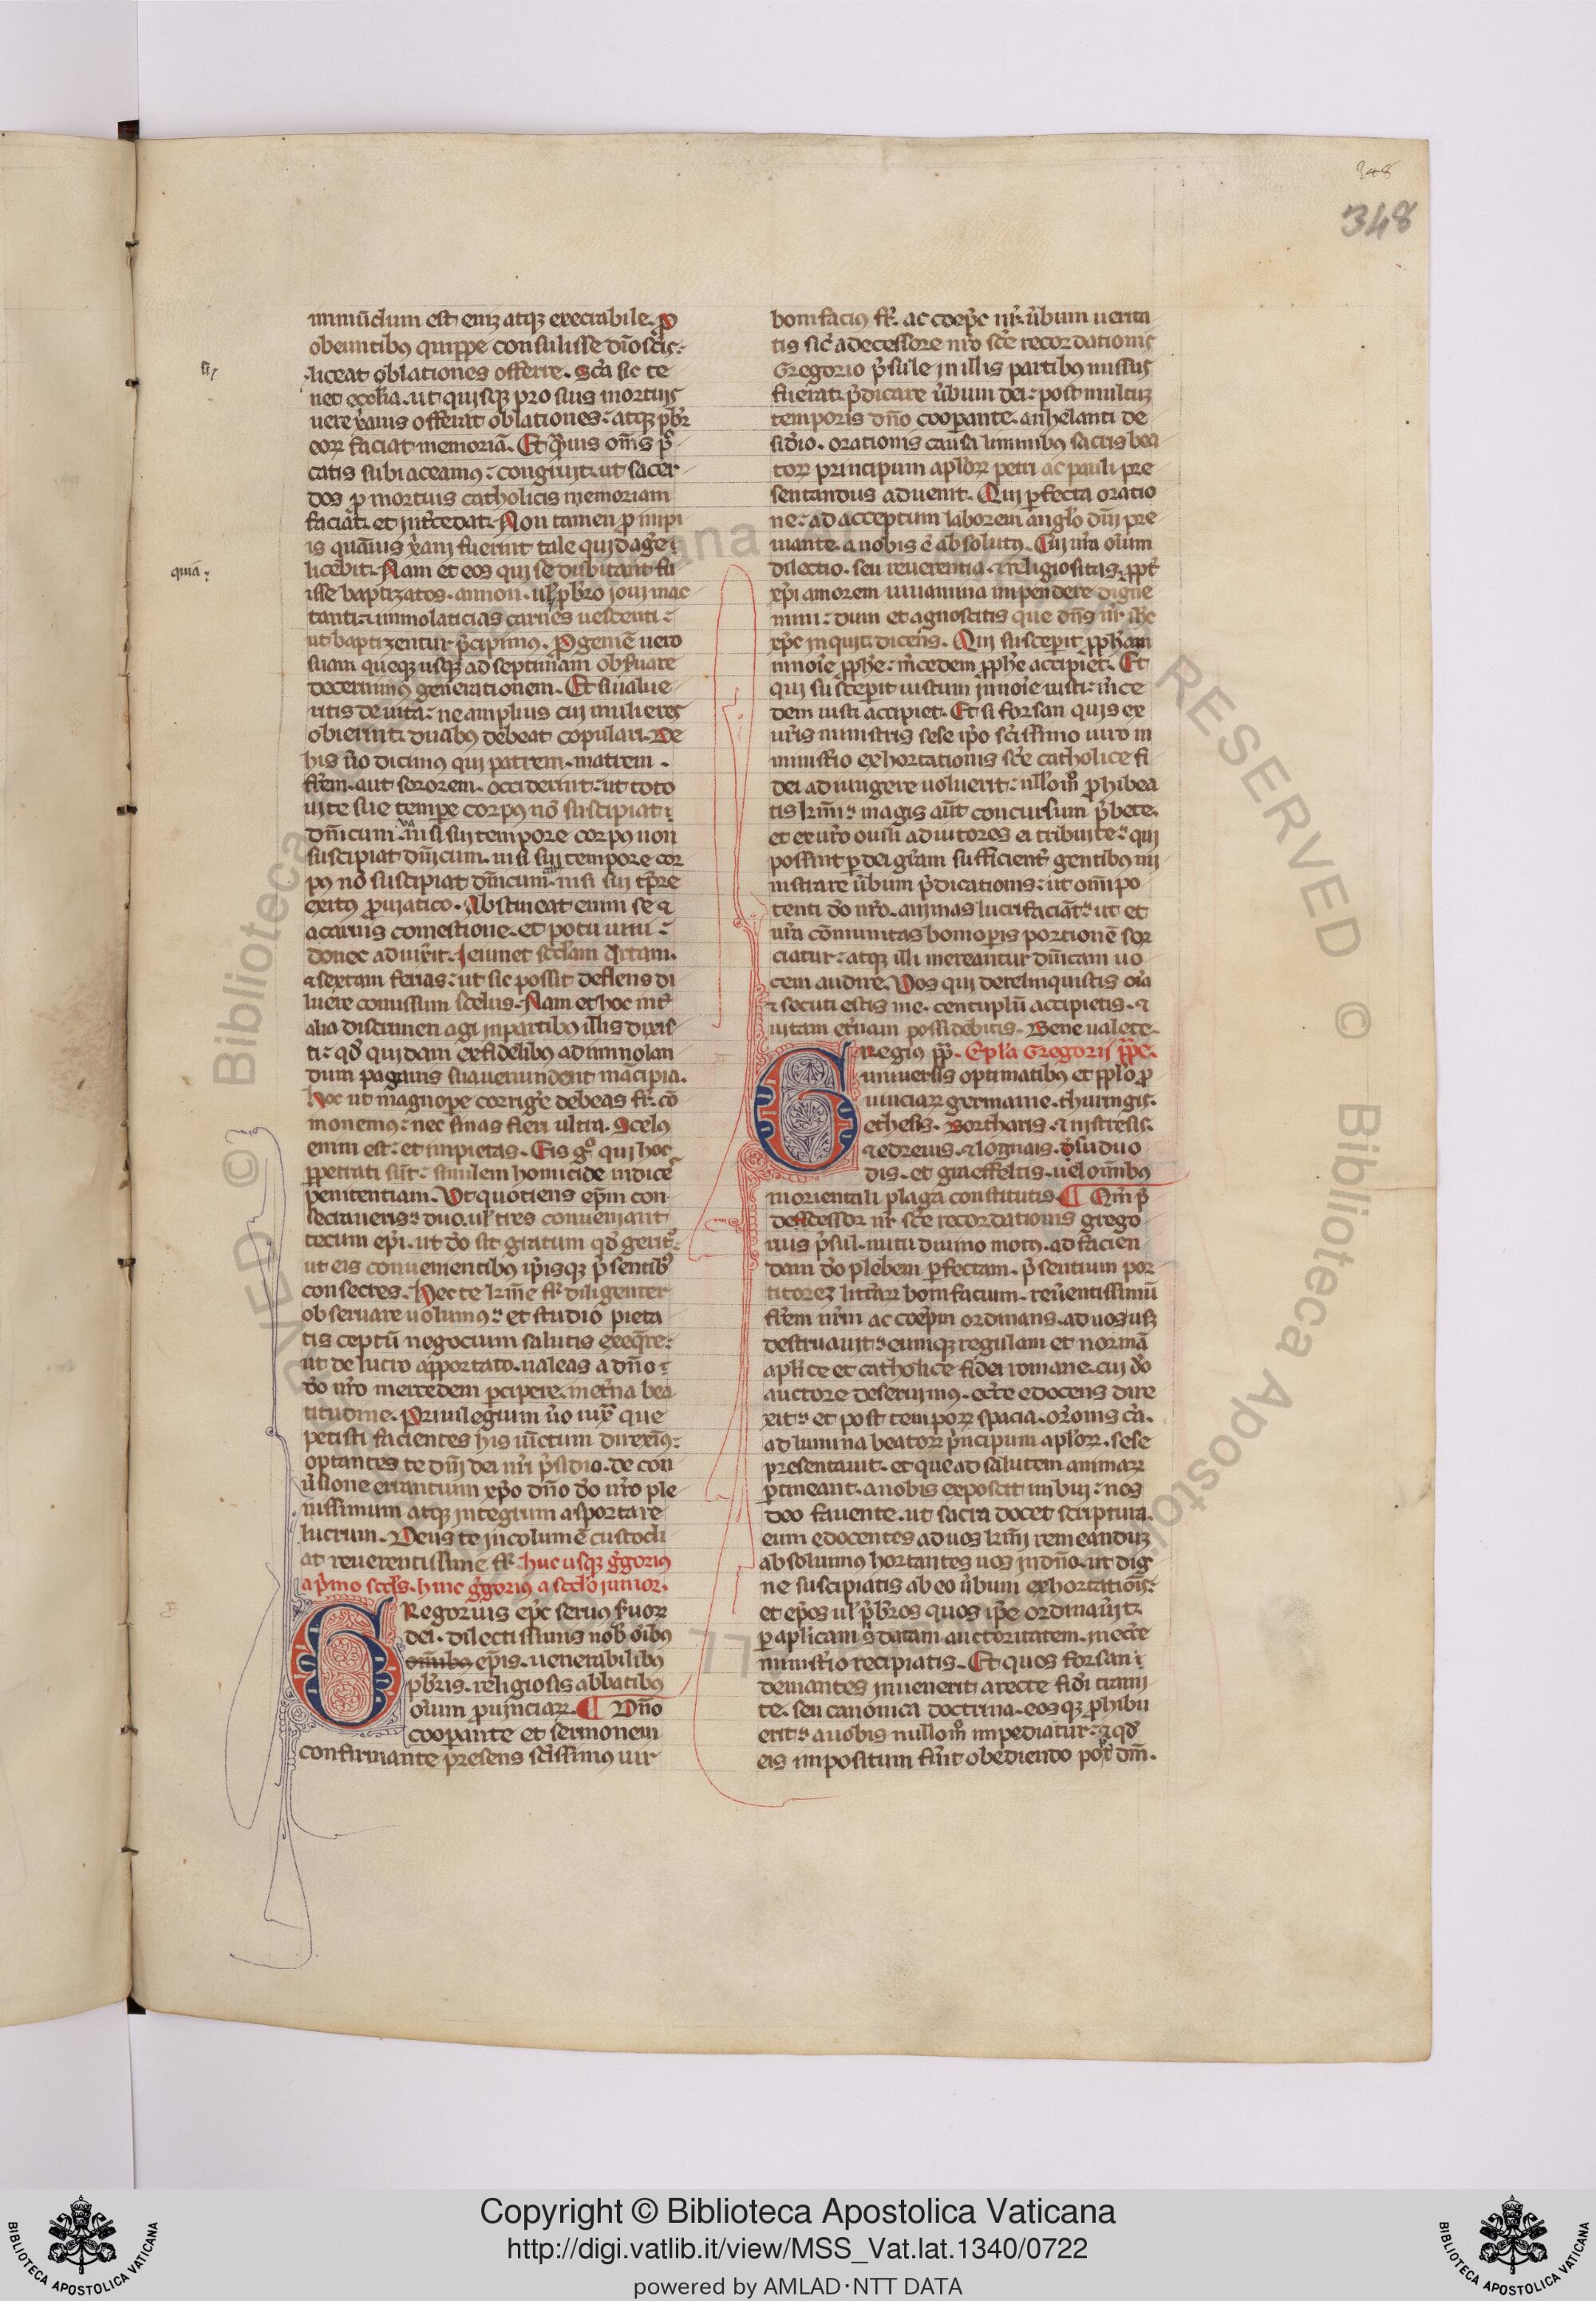 348
348
immũdum est eniꝫ atqꝫ execrabile. ꝓ
obeuntibꝰ quippe consuluisse dĩoscis:
liceat oblationes offerre. Scã sic te
net eccľia. ut quisqꝫ pro suis mortuis
uere xp̃ianis offerat oblationes: atqꝫ pb̃r
eoꝝ faciat memoriã. Et q̃uis om̃s pc̃
catis subiaceamus: congruit. ut sacer
dos ꝓ mortuis catholicis memoriam
faciat. et int̃cedat. Non tamen ꝓ impi
is quãuis xp̃iani fuerint tale quid agẽ:
licebit. Nam et eos qui se dubitant fu
isse baptizatos. an non. uľ pb̃ro ioui mac
tanti: immolaticias carnes uescenti:
ut baptizentur p̃cipimus. Ꝓgeniẽ uero
suam quẽqꝫ usqꝫ ad septimam obseruare
decernimꝰ generationem. Et si ualue
ritis deuita: ne amplius cui mulieres
obierint: duabꝰ debeat copulari. De
his ũo dicimꝰ qui patrem. matrem.
fr̃em. aut sororem. occiderint: ut toto
uite sue tempe corpꝰ nõ suscipiat:
dñicum. nisi sui tempore corpꝰ non
suscipiat dñicum. nisi sui tempore cor
pꝰ nõ suscipiat dñicum. nisi sui tp̃re
exitꝰ ꝓ uiatico. Abstineat enim se a
a carnis comestione. et potu uini:
donec aduixit. Ieiunet scďam q̃rtam.
⁊ sextam ferias: ut sic possit deflens di
luere comissum scelus. Nam et hoc int̃
alia discrimen agi in partibꝰ illis dixis
ti: qď quidam ex fidelibꝰ ad immolan
dum paganis sua uenundent mãcipia.
hoc ut magnope corrigẽ debeas fr̃. cõ
monemꝰ: nec sinas fieri ultra. Scelꝰ
enim est: et impietas. Eis gͦ qui hoc
ꝑpetrati sũt: similem homicide indicẽ
penitentiam. Ut quotiens ep̃m con
secraueris: duo. uľ tres conueniant
tecum ep̃i. ut dõ sit gratum qď gerit̃:
ut eis conuenientibꝰ ip̃isqꝫ p̃sentibꝰ
consecres. Hec te kr̃me fr̃. diligenter
obseruare uolumꝰ: et studio pieta
tis ceptũ negocium salutis exeq̃re:
ut de lucro apportato. ualeas a dño:
dõ nr̃o mercedem ꝑcipere. in et̃na bea
titudine. Priuilegium ũo iux̃ que
petisti facientes his iũctum direxiꝰ:
optantes te dñi dei nr̃i p̃sidio. de con
ũsione errantium xp̃o dño dõ nr̃o ple
nissimum atqꝫ integrum asportare
lucrum. Deus te incolumẽ custodi
at reuerentissime fr̃. huc usqꝫ g̃gorius
a p̃mo scďs. hinc g̃gorius a scďo iunior.
GRegorius ep̃c seruꝰ seruoꝝ
dei. dilectissimis nob oĩbꝰ
omnibꝰ ep̃is. uenerabilibꝰ
pb̃ris. religiosis abbatibꝰ
oĩum prouinciaꝝ. ¶ Dño
coopante et sermonem
confirmante presens scissimus uir
bonifacius fr̃. ac coep̃c nr̃. ũbum uerita
tis sic a decessore nr̃o scẽ recordationis
Gregorio p̃sule in illis partibꝰ missus
fuerat. p̃dicare ũbum dei: post multuꝫ
temporis dño coopante. anhelanti de
siďio. orationis causa liminibꝰ sacris bea
toꝝ principum aploꝝ petri ac pauli pre
sentandus aduenit. Qui ꝑfecta oratio
ne: ad acceptum laborem anglo dñi pre
uiante. a nobis ẽ absolutꝰ. Cui ur̃a oĩum
dilectio. seu reuerentia. ⁊ religiositas. ꝓpt̃
xp̃i amorem iuuamina impendere digne
mini: dum et agnoscitis que dñs nr̃ ihc
xp̃c inquit. dicens. Qui susceperit ꝓpħam
in noĩe ꝓpħe: m̃cedem ꝓpħe accipiet. Et
qui susceperit iustum in noĩe iusti: m̃ce
dem iusti accipiet. Et si forsan quis ex
ur̃is ministris sese ip̃o sc̃issimo uiro in
ministrio exhortationis scẽ catholice fi
dei adiungere uoluerit: nulľomͦ ꝓhibea
tis kr̃mi: magis aũt concursum p̃bete.
et ex ur̃o ouili adiutores ei tribuite: qui
possint ꝑ dei gr̃am sufficient̃ gentibꝰ mi
nistrare ũbum p̃dicationis: ut omĩpo
tenti dõ nr̃o. animas lucrifaciãt: ut et
ur̃a cõmunitas boni opis portionẽ sor
ciatur: atqꝫ illi mereantur dñicam uo
cem audire. Vos qui derelinquistis oĩa
⁊ secuti estis me. centuplũ accipietis. ⁊
uitam et̃nam possidebitis. Bene ualete.
GRegius pp̃. Epľa Gregorii pp̃e.
uniuersis optimatibꝰ et ppľo ꝓ
uinciaꝝ germanie. thuringis.
et hesis. Bortharis. ⁊ nistresis:
⁊ edreuis. ⁊ lognais. ⁊ suduo
dis. et graeffeltis. uel omĩbus
in orientali plaga constitutis. ¶ Qm̃ p̃
decessor nr̃ scẽ recordationis grego
rius p̃sul. nutu diuino motꝰ. ad facien
dam dõ plebem ꝑfectam. p̃sentium por
titoreꝫ litt̃aꝝ bonifacium. reũentissimũ
fr̃em nr̃m ac coep̃m ordinans. ad uos usqꝫ
destrauit: eumqꝫ regulam et normã
aplice et catholice fidei romane. cui dõ
auctore deseruimꝰ. ecte edocens dire
xit: et post tempoꝝ spacia. or̃onis cã.
ad lumina beatoꝝ p̃ncipum aploꝝ. sese
presentauit. et que ad salutem animaꝝ
ꝑtineant. a nobis exposcit imbui: nos
deo fauente. ut sacra docet scriptura.
eum edocentes ad uos kr̃mi remeanduꝫ
absoluimus hortantes uos in dño. ut dig
ne suscipiatis ab eo ũbum exhortatiõis:
et ep̃os uľ pb̃ros quos ip̃e ordinaũit.
ꝑ aplicam s̃ datam auctoritatem. in eccľe
ministrio recipiatis. Et quos forsan:
deuiantes inuenerit: a recte fidei trami
te. seu canonica doctrina. eosqꝫ ꝓhibu
erit: a uobis nullomͦ impediatur: ⁊ qď
eis impositum fũit obediendo port̃ dm̃.
quia:
Copyright © Biblioteca Apostolica Vaticana
http://digi.vatlib.it/view/MSS_Vat.lat.1340/0722
powered by AMLAD·NTT DATA
BIBLIOTECA APOSTOLICA VATICANA
BIBLIOTECA APOSTOLICA VATICANA